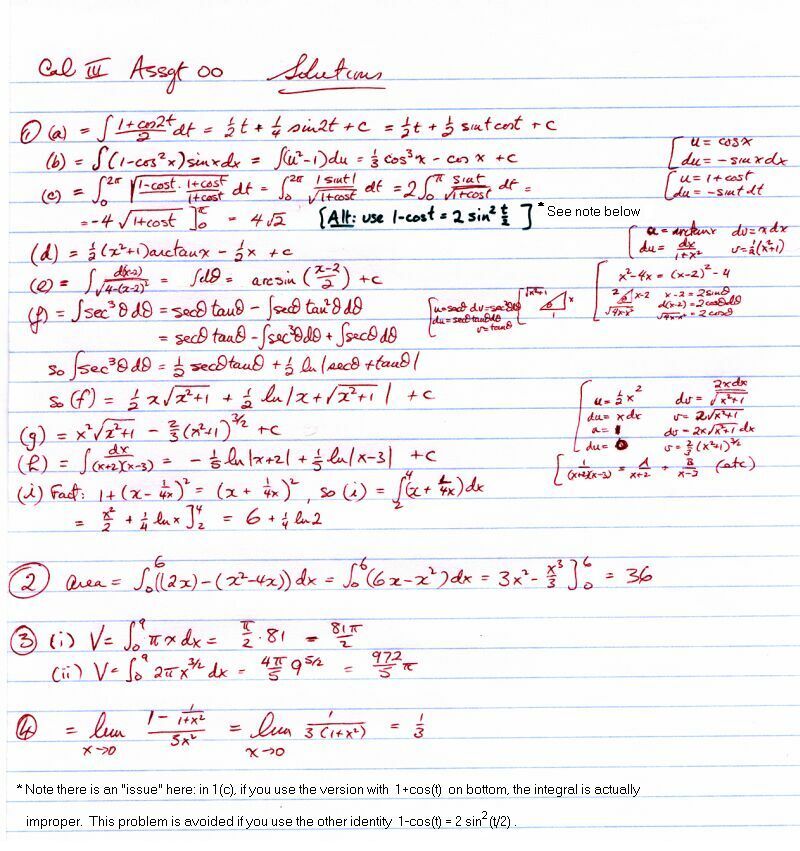 Cal III Assgt 00 Solutions
① (a) = ∫ (1+cos2t)/2 dt = ½t + ¼ sin2t + c = ½t + ½ sint cost + c
(b) = ∫(1-cos²x)sinxdx = ∫(u²-1)du = ⅓cos³x - cosx + c [u = cosx
du = -sinxdx
(c) = ∫₀^2π √(1-cost · (1+cost)/(1+cost)) dt = ∫₀^2π |sint|/√(1+cost) dt = 2∫₀^π sint/√(1+cost) dt = [u = 1+cost
du = -sintdt
= -4 √(1+cost) ]₀^π = 4√2 [Alt: use 1-cost = 2 sin² t/2 ] * See note below
(d) = ½(x²+1)arctanx - ½x + c [u = arctanx dv = xdx
du = dx/(1+x²) v = ½(x²+1)
(e) = ∫ d(x-2)/√(4-(x-2)²) = ∫dθ = arcsin((x-2)/2) + c [x²-4x = (x-2)²-4
2 x-2 θ x-2 = 2sinθ
d(x-2) = 2cosθdθ
√(4x-x²) √(4x-x²) = 2cosθ
(f) = ∫sec³θdθ = secθ tanθ - ∫secθ tan²θdθ [u=secθ dv=sec²θdθ
du=secθtanθdθ
v=tanθ [√(x²+1) x θ 1
= secθ tanθ - ∫sec³θdθ + ∫secθdθ
so ∫sec³θdθ = ½ secθtanθ + ½ ln|secθ+tanθ|
so (f) = ½ x√(x²+1) + ½ ln|x+√(x²+1)| + c
(g) = x²√(x²+1) - ⅔(x²+1)^3/2 + c [u = ½x² dv = 2xdx/√(x²+1)
du = xdx v = 2√(x²+1)
u = 1 dv = 2x√(x²+1) dx
du = 0 v = ⅔(x²+1)^3/2
(h) = ∫ dx/((x+2)(x-3)) = -⅕ ln|x+2| + ⅕ ln|x-3| + c [1/((x+2)(x-3)) = A/(x+2) + B/(x-3) (etc)
(i) Fact: 1+(x-1/4x)² = (x+1/4x)², so (i) = ∫₂⁴(x+1/4x)dx
= x²/2 + ¼ lnx ]₂⁴ = 6 + ¼ ln2
② area = ∫₀⁶((2x)-(x²-4x))dx = ∫₀⁶(6x-x²)dx = 3x²-x³/3 ]₀⁶ = 36
③ (i) V = ∫₀⁹ πxdx = π/2 · 81 = 81π/2
(ii) V = ∫₀⁹ 2πx^3/2 dx = 4π/5 9^5/2 = 972/5 π
④ = lim x→0 (1 - 1/(1+x²))/3x² = lim x→0 1/(3(1+x²)) = 1/3
* Note there is an "issue" here: in 1(c), if you use the version with 1+cos(t) on bottom, the integral is actually
improper. This problem is avoided if you use the other identity 1-cos(t) = 2 sin²(t/2) .